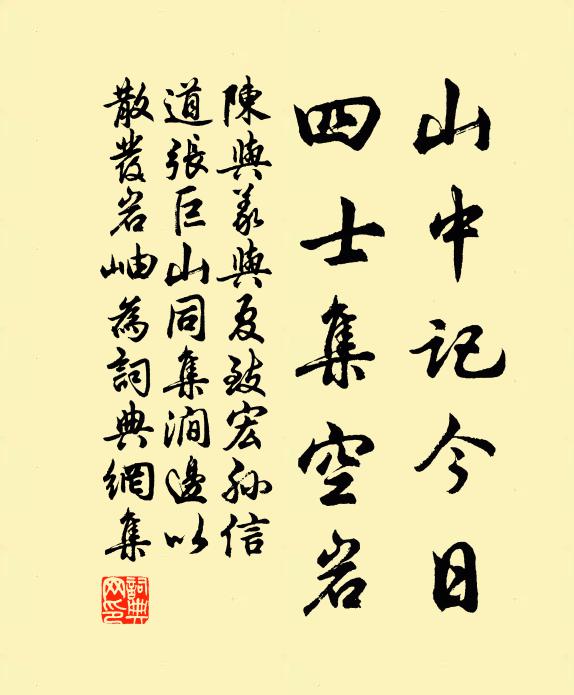 山中记今日
四士集空岩
陳與義與夏致宏孫信
道張巨山同集澗邊以
散發岩岫為詞典網集
詞典網印